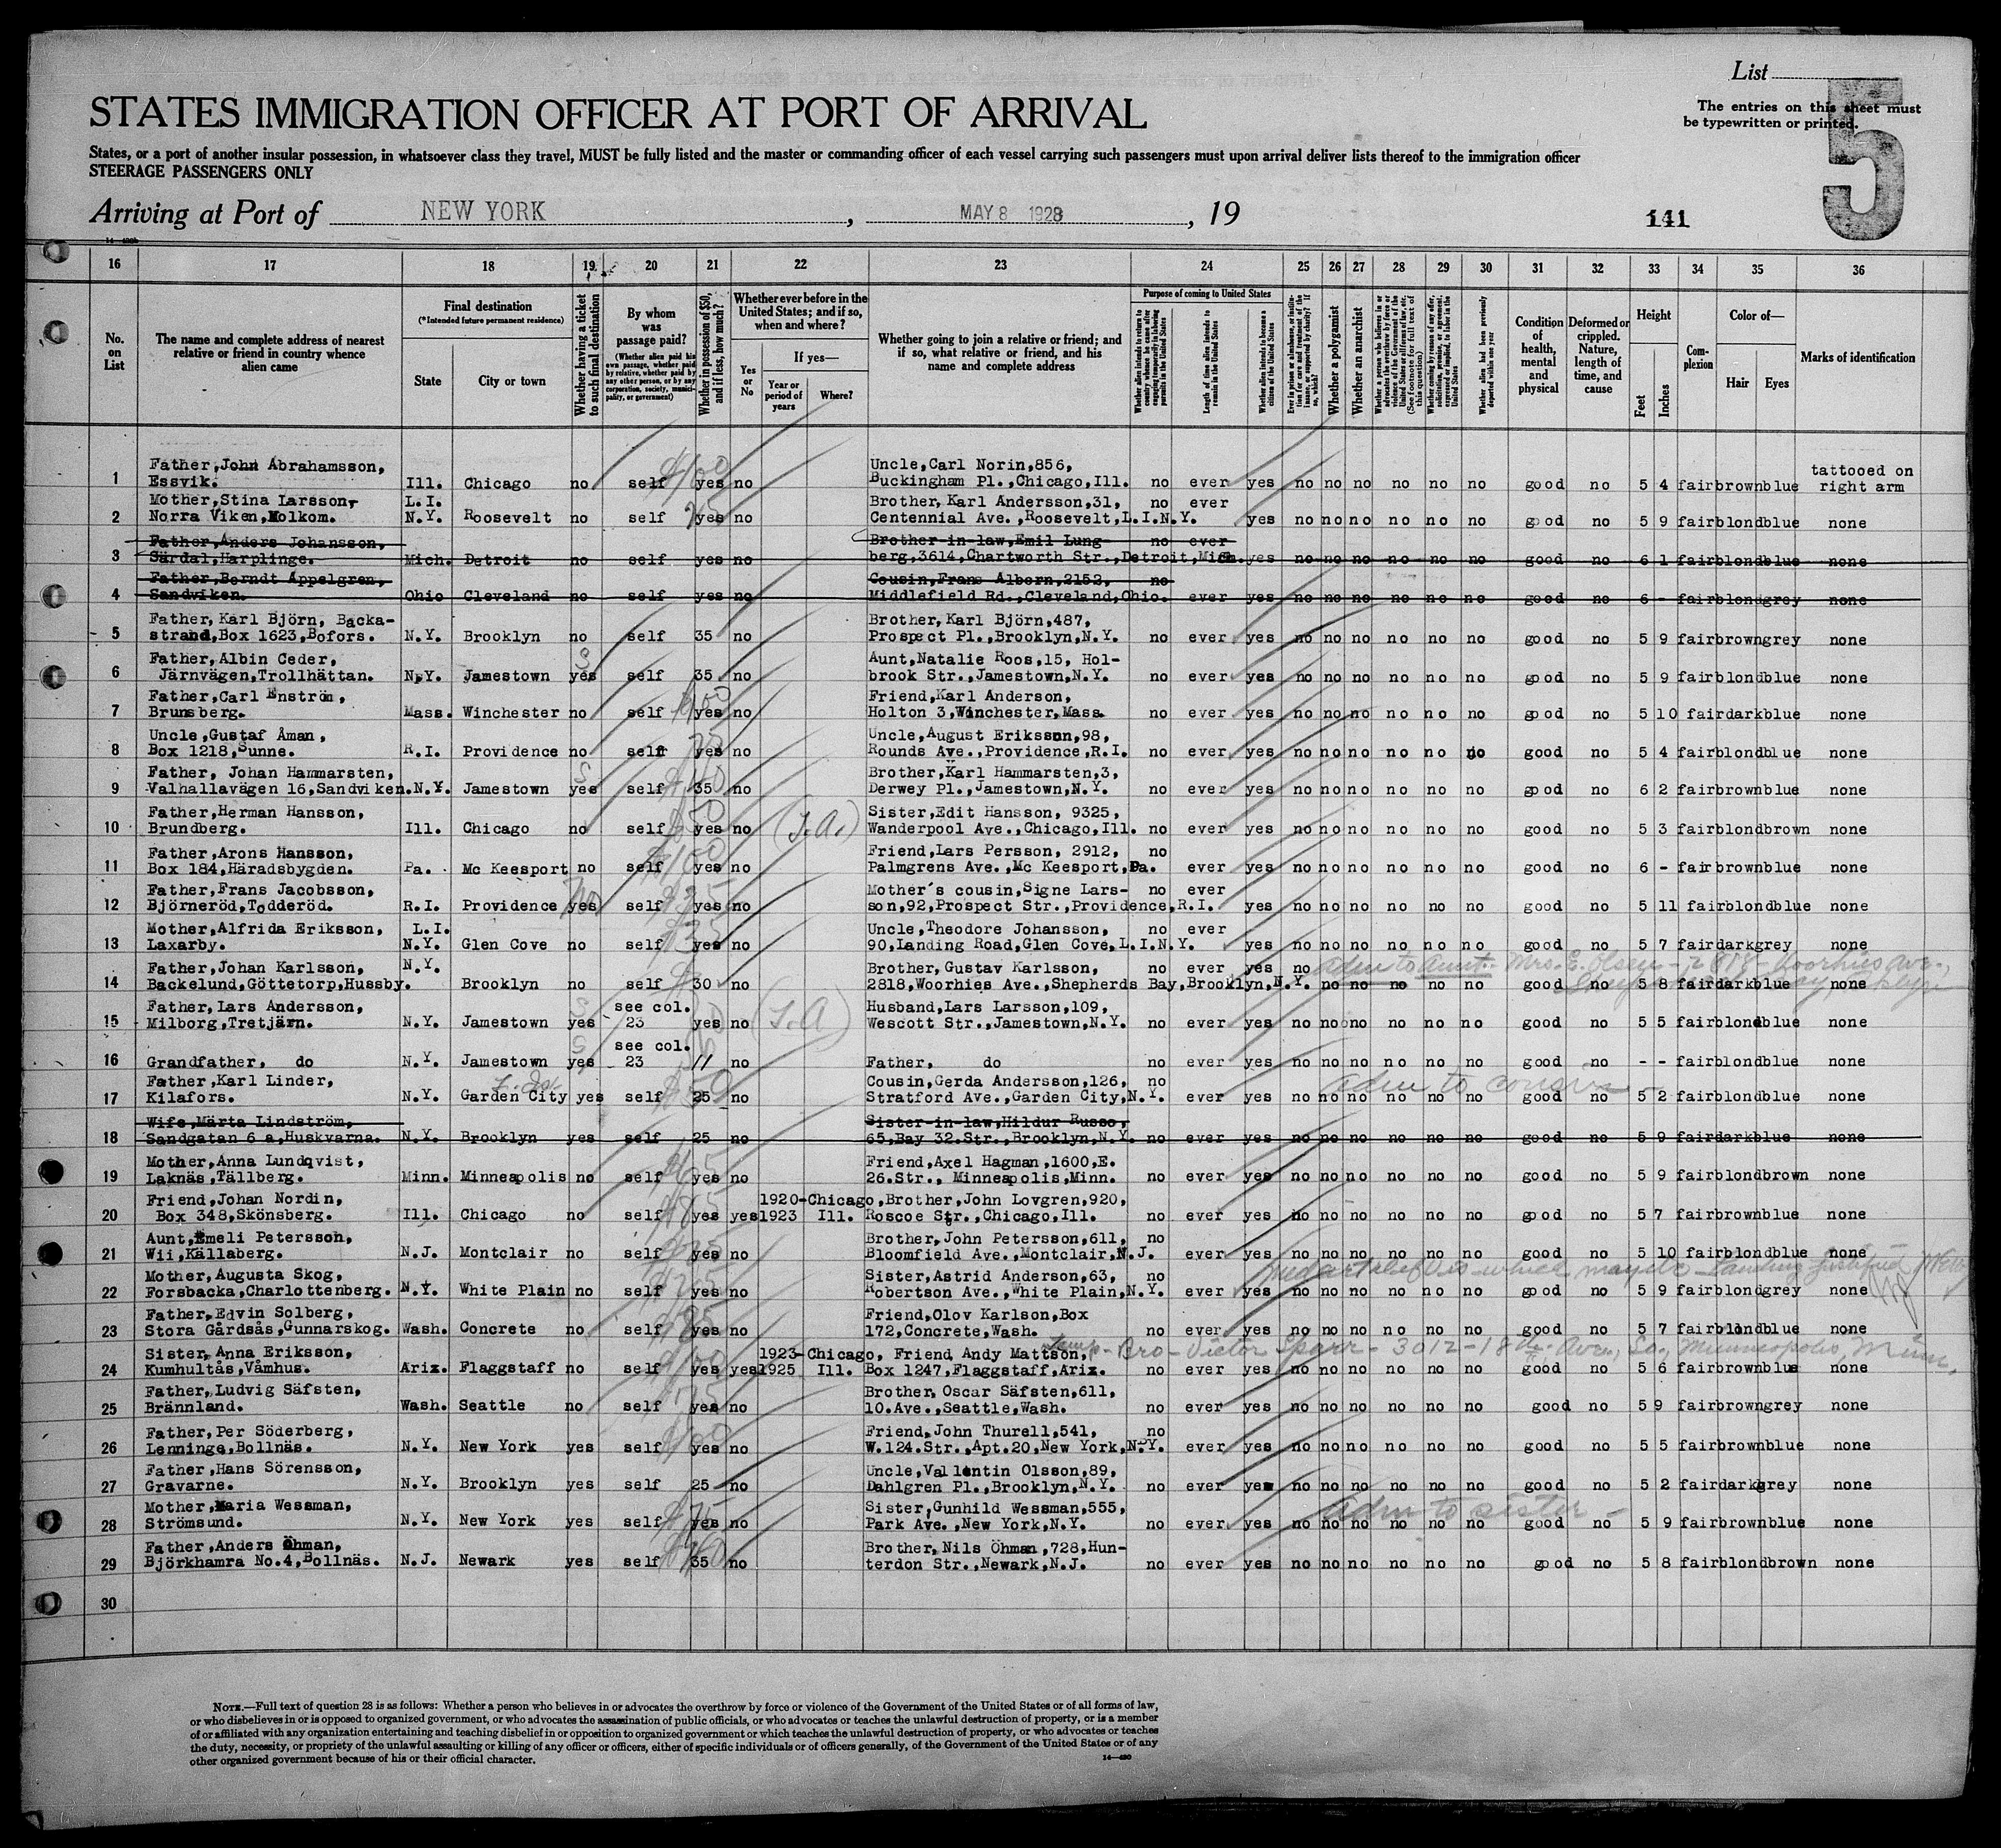 List
5
The entries on this sheet must
be typewritten or printed.
STATES IMMIGRATION OFFICER AT PORT OF ARRIVAL
States, or a port of another insular possession, in whatsoever class they travel, MUST be fully listed and the master or commanding officer of each vessel carrying such passengers must upon arrival deliver lists thereof to the immigration officer
STEERAGE PASSENGERS ONLY
Arriving at Port of NEW YORK , MAY 8 1928 , 19
141
16 17 18 19 20 21 22 23 24 25 26 27 28 29 30 31 32 33 34 35 36
No. on List
The name and complete address of nearest relative or friend in country whence alien came
Final destination
(*Intended future permanent residence)
State
City or town
Whether having a ticket to such final destination
By whom was passage paid?
(Whether alien paid his own passage, whether paid by relative, whether paid by any other person, or by any corporation, society, municipality, or government)
Whether in possession of $50, and if less, how much?
Whether ever before in the United States; and if so, when and where?
Yes or No
If yes—
Year or period of years
Where?
Whether going to join a relative or friend; and if so, what relative or friend, and his name and complete address
Purpose of coming to United States
Length of time alien intends to remain in the United States
Whether alien intends to become a citizen of the United States
Whether a polygamist
Whether an anarchist
Whether alien had been previously deported within one year
Condition of health, mental and physical
Deformed or crippled. Nature, length of time, and cause
Height
Feet
Inches
Complexion
Color of—
Hair
Eyes
Marks of identification
Father,John Abrahamsson, Uncle,Carl Norin,856, tattooed on
1 Essvik. Ill. Chicago no self yes no Buckingham Pl.,Chicago,Ill. no ever yes no no no no no no good no 5 4 fair brown blue right arm
Mother,Stina Larsson, L.I. Brother, Karl Andersson,31, no ever
2 Norra Viken,Molkom. N.Y. Roosevelt no self yes no Centennial Ave.,Roosevelt,L.I.N.Y. yes no no no no no no good no 5 9 fair blond blue none
Father,Anders Johansson, Brother-in-law,Emil Lung- no ever
3 Särdal,Harplinge. Mich. Detroit no self yes no berg,3614,Chartworth Str.,Detroit,Mich. yes no no no no no no good no 6 1 fair blond blue none
Father,Berndt Appelgren, Cousin,Frans Albern,2152, no
4 Sandviken. Ohio Cleveland no self yes no Middlefield Rd.,Cleveland,Ohio. ever yes no no no no no no good no 6 - fair blond grey none
Father, Karl Björn, Backa- Brother, Karl Björn,487,
5 strand,Box 1623,Bofors. N.Y. Brooklyn no self 35 no Prospect Pl.,Brooklyn,N.Y. no ever yes no no no no no no good no 5 9 fair brown grey none
Father,Albin Ceder, Aunt,Natalie Roos,15, Hol-
6 Järnvägen,Trollhättan. N.Y. Jamestown yes self 35 no brook Str.,Jamestown,N.Y. no ever yes no no no no no no good no 5 9 fair blond blue none
Father,Carl Enström, Friend,Karl Anderson,
7 Brunsberg. Mass. Winchester no self yes no Holton 3,Winchester,Mass. no ever yes no no no no no no good no 5 10 fair dark blue none
Uncle,Gustaf Åman, Uncle,August Eriksson,98,
8 Box 1218,Sunne. R.I. Providence no self yes no Rounds Ave.,Providence,R.I. no ever yes no no no no no no good no 5 4 fair blond blue none
Father, Johan Hammarsten, Brother,Karl Hammarsten,3,
9 Valhallavägen 16,Sandviken. N.Y. Jamestown yes self 35 no Derwey Pl.,Jamestown,N.Y. no ever yes no no no no no no good no 6 2 fair brown blue none
Father,Herman Hansson, Sister,Edit Hansson, 9325,
10 Brundberg. Ill. Chicago no self yes no Wanderpool Ave.,Chicago,Ill. no ever yes no no no no no no good no 5 3 fair blond brown none
Father,Arons Hansson, Friend,Lars Persson, 2912, no
11 Box 184,Häradsbygden. Pa. Mc Keesport no self $100 yes no Palmgrens Ave.,Mc Keesport,Pa. ever yes no no no no no no good no 6 - fair brown blue none
Father,Frans Jacobsson, Mother's cousin,Signe Lars- no ever
12 Björneröd,Todderöd. R.I. Providence yes no self $35 yes no son,92,Prospect Str.,Providence,R.I. yes no no no no no no good no 5 11 fair blond blue none
Mother,Alfrida Eriksson, L.I. Uncle,Theodore Johansson, no ever
13 Laxarby. N.Y. Glen Cove no self $35 yes no 90,Landing Road,Glen Cove,L.I.N.Y. yes no no no no no no good no 5 7 fair dark grey none
Father,Johan Karlsson, N.Y. Brother,Gustav Karlsson, no ever yes no adm to aunt- Mrs. E. Olsen - 2818 - Voorhies Ave.,
14 Backelund,Göttetorp,Hussby. Brooklyn no self 30 no 2818,Woorhies Ave.,Shepherds Bay,Brooklyn,N.Y. no no no no no good no 5 8 fair dark blue none
Father,Lars Andersson, see col. Husband,Lars Larsson,109,
15 Milborg,Tretjärn. N.Y. Jamestown yes 23 yes no Wescott Str.,Jamestown,N.Y. no ever yes no no no no no no good no 5 5 fair blond blue none
see col.
16 Grandfather, do N.Y. Jamestown yes 23 // no Father, do no ever yes no no no no no no good no - - fair blond blue none
Father,Karl Linder, Cousin,Gerda Andersson,126, no adm to cousin -
17 Kilafors. N.Y. Garden City yes self $50 25 no Stratford Ave.,Garden City,N.Y. ever yes no no no no no no good no 5 2 fair blond blue none
Wife,Märta Lindström, Sister-in-law,Hildur Russo,
18 Sandgatan 6 a,Huskvarna. N.Y. Brooklyn yes self 25 no 65,Bay 32.Str.,Brooklyn,N.Y. no ever yes no no no no no no good no 5 9 fair dark blue none
Mother,Anna Lundqvist, Friend,Axel Hagman,1600,E.
19 Laknäs,Tällberg. Minn. Minneapolis no self yes no 26.Str., Minneapolis,Minn. no ever yes no no no no no no good no 5 9 fair blond brown none
Friend,Johan Nordin, 1920-Chicago, Brother,John Lovgren,920,
20 Box 348,Skönsberg. Ill. Chicago no self yes yes 1923 Ill. Roscoe Str.,Chicago,Ill. no ever yes no no no no no no good no 5 7 fair brown blue none
Aunt,Emeli Petersson, Brother,John Petersson,611, no
21 Wii,Källaberg. N.J. Montclair no self yes no Bloomfield Ave.,Montclair,N.J. ever yes no no no no no no good no 5 10 fair blond blue none
Mother,Augusta Skog, Sister,Astrid Anderson,63, no
22 Forsbacka,Charlottenberg. N.Y. White Plain no self yes no Robertson Ave.,White Plain,N.Y. ever yes no no no no no no good no 5 9 fair blond grey none
Father,Edvin Solberg, Friend,Olov Karlson,Box
23 Stora Gårdsås,Gunnarskog. Wash. Concrete no self yes no 172,Concrete,Wash. no ever yes no no no no no no good no 5 7 fair blond blue none
Sister,Anna Eriksson, 1923-Chicago, Friend Andy Mattson, Bro - Victor Sparr - 3012 - 18th Ave., So., Minneapolis, Minn.
24 Kumhultås,Våmhus. Ariz. Flaggstaff no self yes yes 1925 Ill. Box 1247,Flaggstaff,Ariz. no ever yes no no no no no no good no 5 6 fair brown blue none
Father,Ludvig Säfsten, Brother,Oscar Säfsten,611,
25 Brännland. Wash. Seattle no self yes no 10.Ave.,Seattle,Wash. no ever yes no no no no no no good no 5 9 fair brown grey none
Father,Per Söderberg, Friend,John Thurell,541, no
26 Lenninge,Bollnäs. N.Y. New York yes self yes no W.124.Str.,Apt.20,New York,N.Y. ever yes no no no no no no good no 5 5 fair brown blue none
Father,Hans Sörensson, Uncle,Valentin Olsson,89,
27 Gravarne. N.Y. Brooklyn yes self 25 no Dahlgren Pl.,Brooklyn,N.Y. no ever yes no no no no no no good no 5 2 fair dark grey none
Mother,Maria Wessman, Sister,Gunhild Wessman,555, adm to sister -
28 Strömsund. N.Y. New York yes self yes no Park Ave.,New York,N.Y. no ever yes no no no no no no good no 5 9 fair brown blue none
Father,Anders Öhman, Brother,Nils Öhman,728,Hun-
29 Björkhamra No.4,Bollnäs. N.J. Newark yes self 35 no terdon Str.,Newark,N.J. no ever yes no no no no no no good no 5 8 fair blond brown none
30
NOTE.—Full text of question 28 is as follows: Whether a person who believes in or advocates the overthrow by force or violence of the Government of the United States or of all forms of law,
or who disbelieves in or is opposed to organized government, or who advocates the assassination of public officials, or who advocates or teaches the unlawful destruction of property, or is a member
of or affiliated with any organization entertaining and teaching disbelief in or opposition to organized government or which teaches the unlawful destruction of property, or who advocates or teaches
the duty, necessity, or propriety of the unlawful assaulting or killing of any officer or officers, either of specific individuals or of officers generally, of the Government of the United States or of any
other organized government because of his or their official character.
14—430